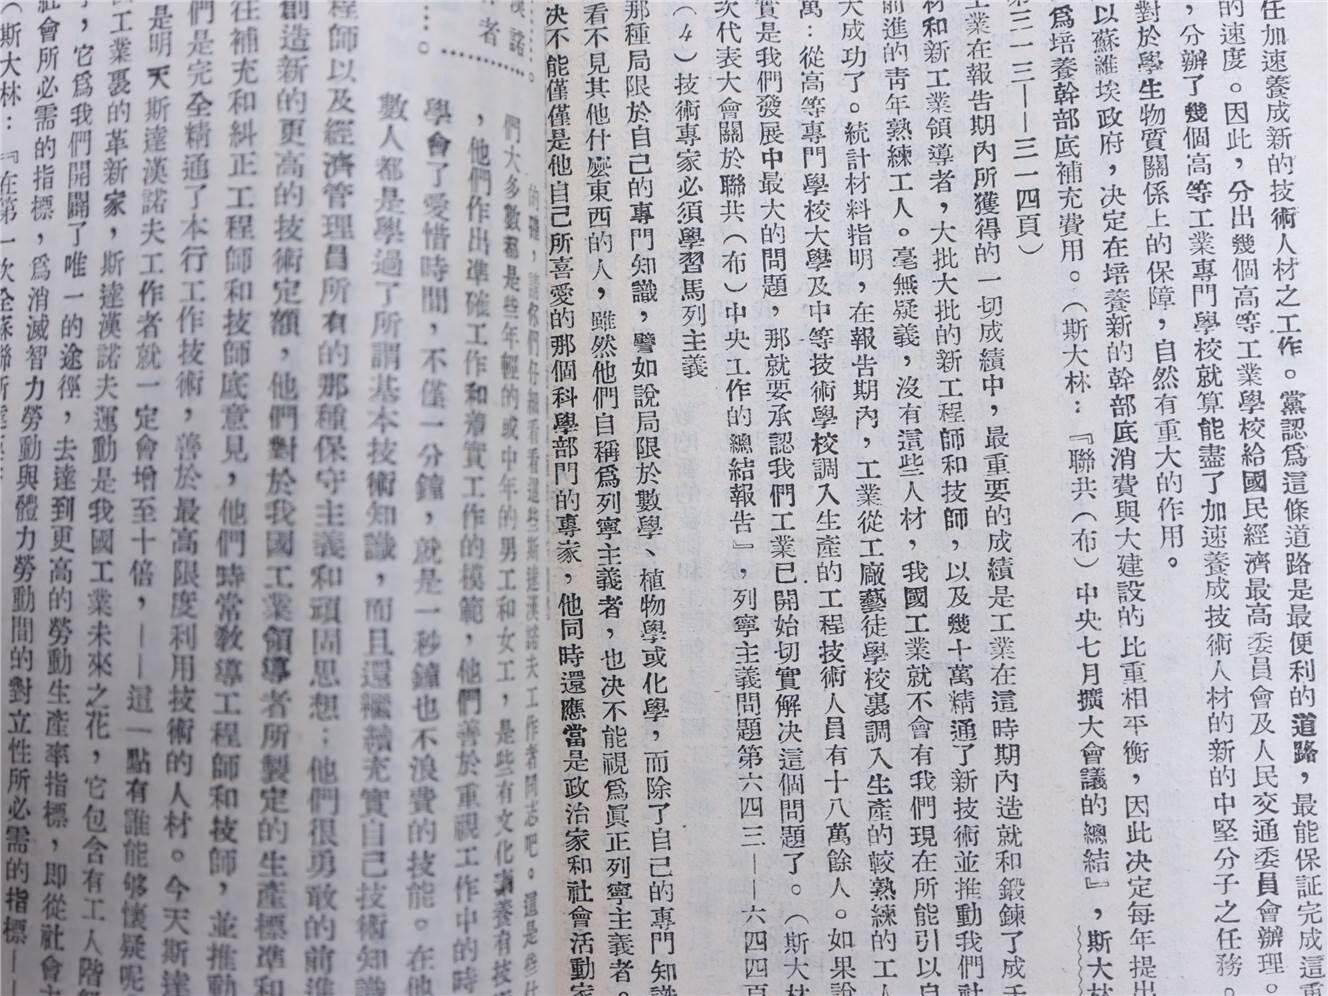 任加速養成新的技術人材之工作。黨認爲這條道路是最便利的道路，最能保証完成這重
的速度。因此，分出幾個高等工業學校給國民經濟最高委員會及人民交通委員會辦理。
，分辦了幾個高等工業專門學校就算能盡了加速養成技術人材的新的中堅分子之任務。
對於學生物質關係上的保障，自然有重大的作用。
以蘇維埃政府，决定在培養新的幹部底消費與大建設的比重相平衡，因此决定每年提出
爲培養幹部底補充費用。（斯大林：『聯共（布）中央七月擴大會議的總結』，斯大林
第三一三——三一四頁）
工業在報告期內所獲得的一切成績中，最重要的成績是工業在這時期內造就和鍛鍊了成千
材和新工業領導者，大批大批的新工程師和技師，以及幾十萬精通了新技術並推動我們社
前進的青年熟練工人。毫無疑義，沒有這些人材，我國工業就不會有我們現在所能引以自
大成功了。統計材料指明，在報告期內，工業從工廠藝徒學校裏調入生產的較熟練的工人
萬：從高等專門學校大學及中等技術學校調入生產的工程技術人員有十八萬餘人。如果說
實是我們發展中最大的問題，那就要承認我們工業已開始切實解决這個問題了。（斯大林
次代表大會關於聯共（布）中央工作的總結報告』，列寧主義問題第六四三——六四四頁
（4）技術專家必須學習馬列主義
那種局限於自己的專門知識，譬如說局限於數學、植物學或化學，而除了自己的專門知識
看不見其他什麽東西的人，雖然他們自稱爲列寧主義者，也决不能視爲眞正列寧主義者。
决不能僅僅是他自己所喜愛的那個科學部門的專家，他同時還應當是政治家和社會活動家
的確，請你們仔細看看這些斯達漢諾夫工作者同志吧。這是些什
們大多數都是些年輕的或中年的男工和女工，是些有文化素養有技
，他們作出準確工作和着實工作的模範，他們善於重視工作中的時
學會了愛惜時間，不僅一分鐘，就是一秒鐘也不浪費的技能。在他
數人都是學過了所謂基本技術知識，而且還繼續充實自己技術知識
程師以及經濟管理員所有的那種保守主義和頑固思想；他們很勇敢的前進
創造新的更高的技術定額，他們對於我國工業領導者所製定的生產標準和
在補充和糾正工程師和技師底意見，他們時常教導工程師和技師，並推動
們是完全精通了本行工作技術，善於最高限度利用技術的人材。今天斯達
是明天斯達漢諾夫工作者就一定會增至十倍，——這一點有誰能够懷疑呢
國工業裏的革新家，斯達漢諾夫運動是我國工業未來之花，它包含有工人階級
，它爲我們開闢了唯一的途徑，去達到更高的勞動生產率指標，即從社會主
社會所必需的指標，爲消滅智力勞動與體力勞動間的對立性所必需的指標—
（斯大林：『在第一次全蘇聯斯達